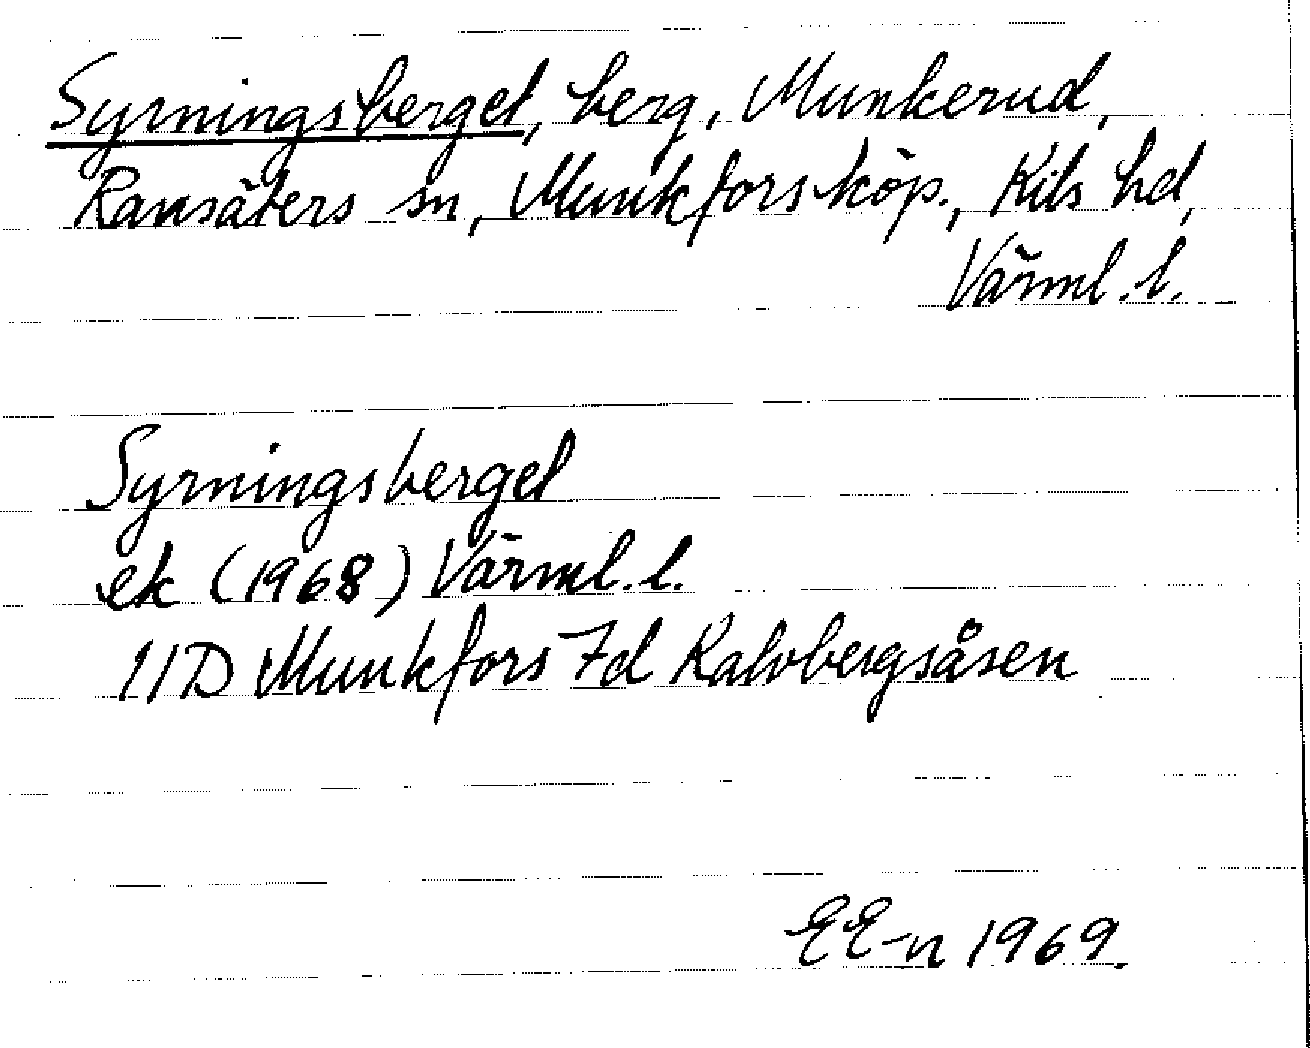 Syrningsberget, berg, Munkerud,
Ransäters sn, Munkfors köp., Kils hd,
Värml. l.
Syrningsberget
ek (1968) Värml. l.
11D Munkfors 7d Kalvbergsåsen
EE-n 1969.